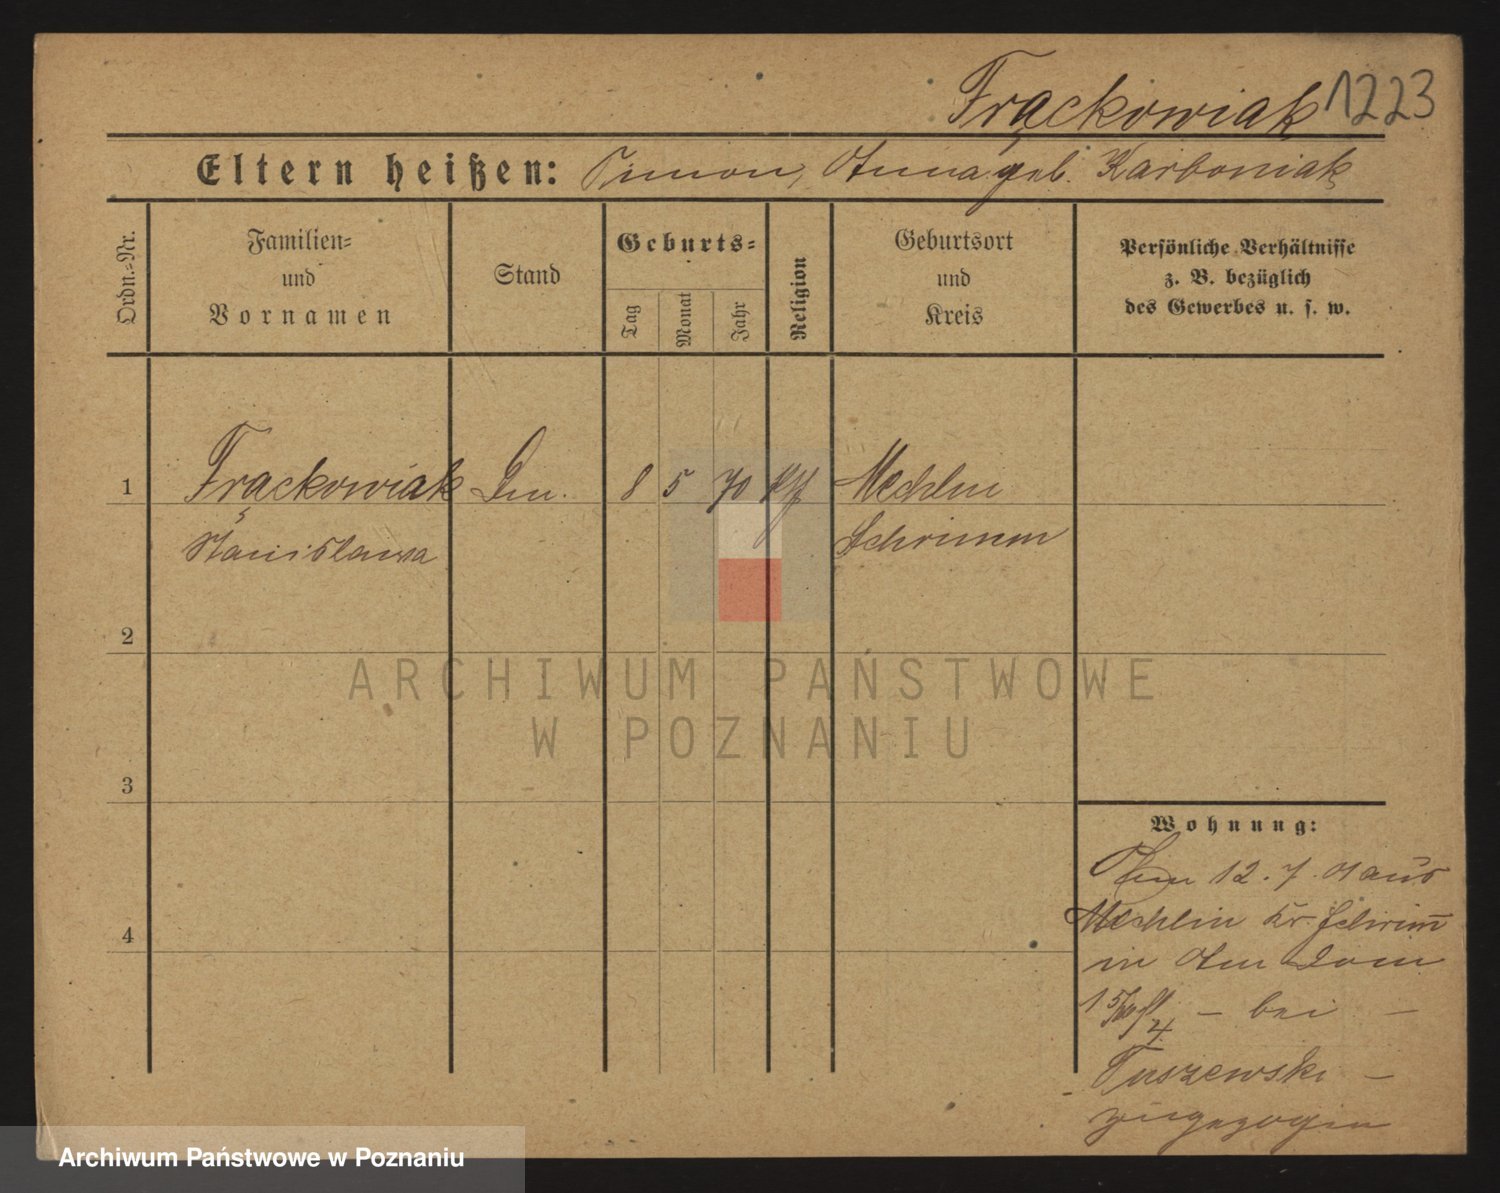 Frąckowiak 1223
Eltern heißen: Simon, Anna geb. Karboniak
Ordn.=Nr.
Familien=
und
Vornamen
Stand
Geburts=
Tag
Monat
Jahr
Religion
Geburtsort
und
Kreis
Persönliche Verhältnisse
z. B. bezüglich
des Gewerbes u. s. w.
1 Frąckowiak 8 5 70 Mechlin
Stanislawa Schrimm
2
3
4
Wohnung:
12. 7. 01 aus
Mechlin Kr. Schrimm
in Am Dom
– bei –
Tuszewski –
zugezogen
ARCHIWUM PAŃSTWOWE
W POZNANIU
Archiwum Państwowe w Poznaniu